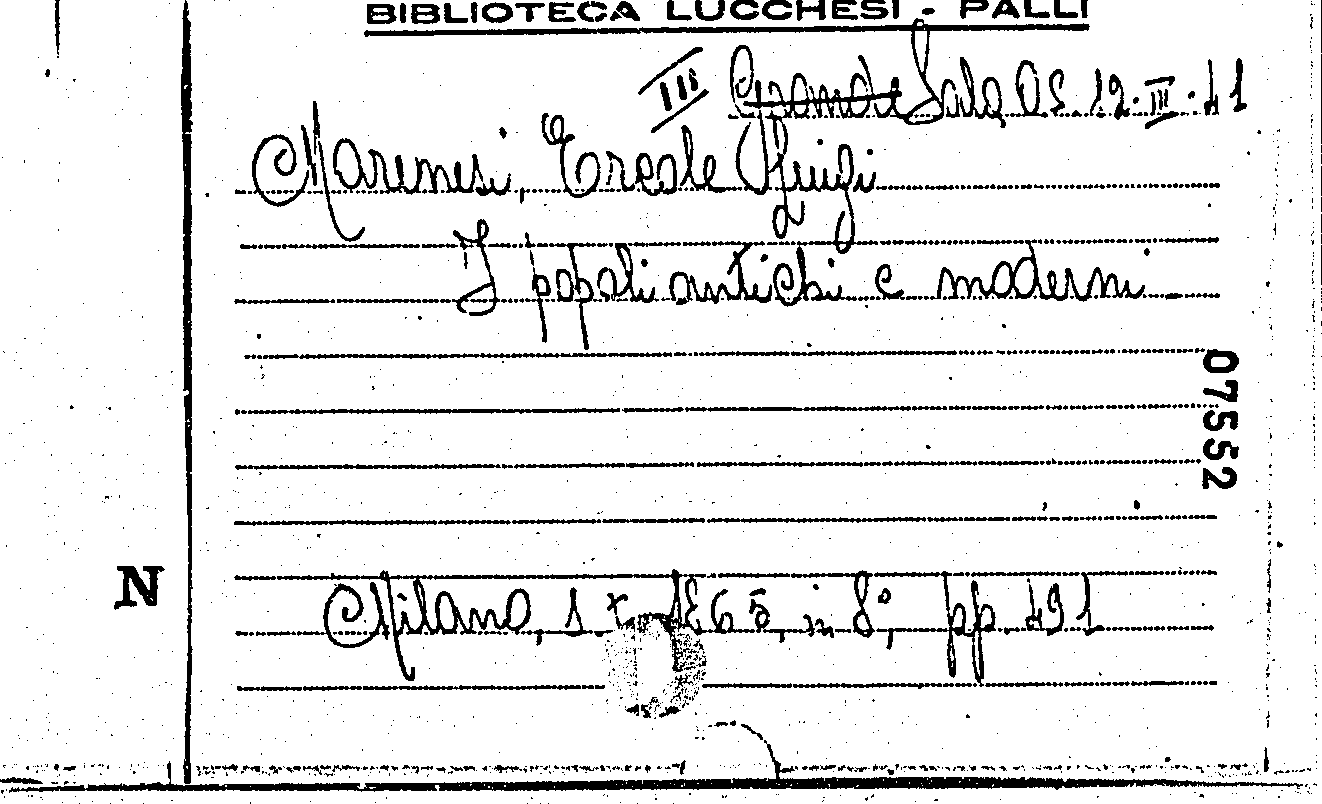 BIBLIOTECA LUCCHESI - PALLI
III Grande Sala OS. 12. III. 41
Marenesi, Ercole Luigi
I popoli antichi e moderni
07552
N
Milano, s. t. 1865, in 8°, pp. 491